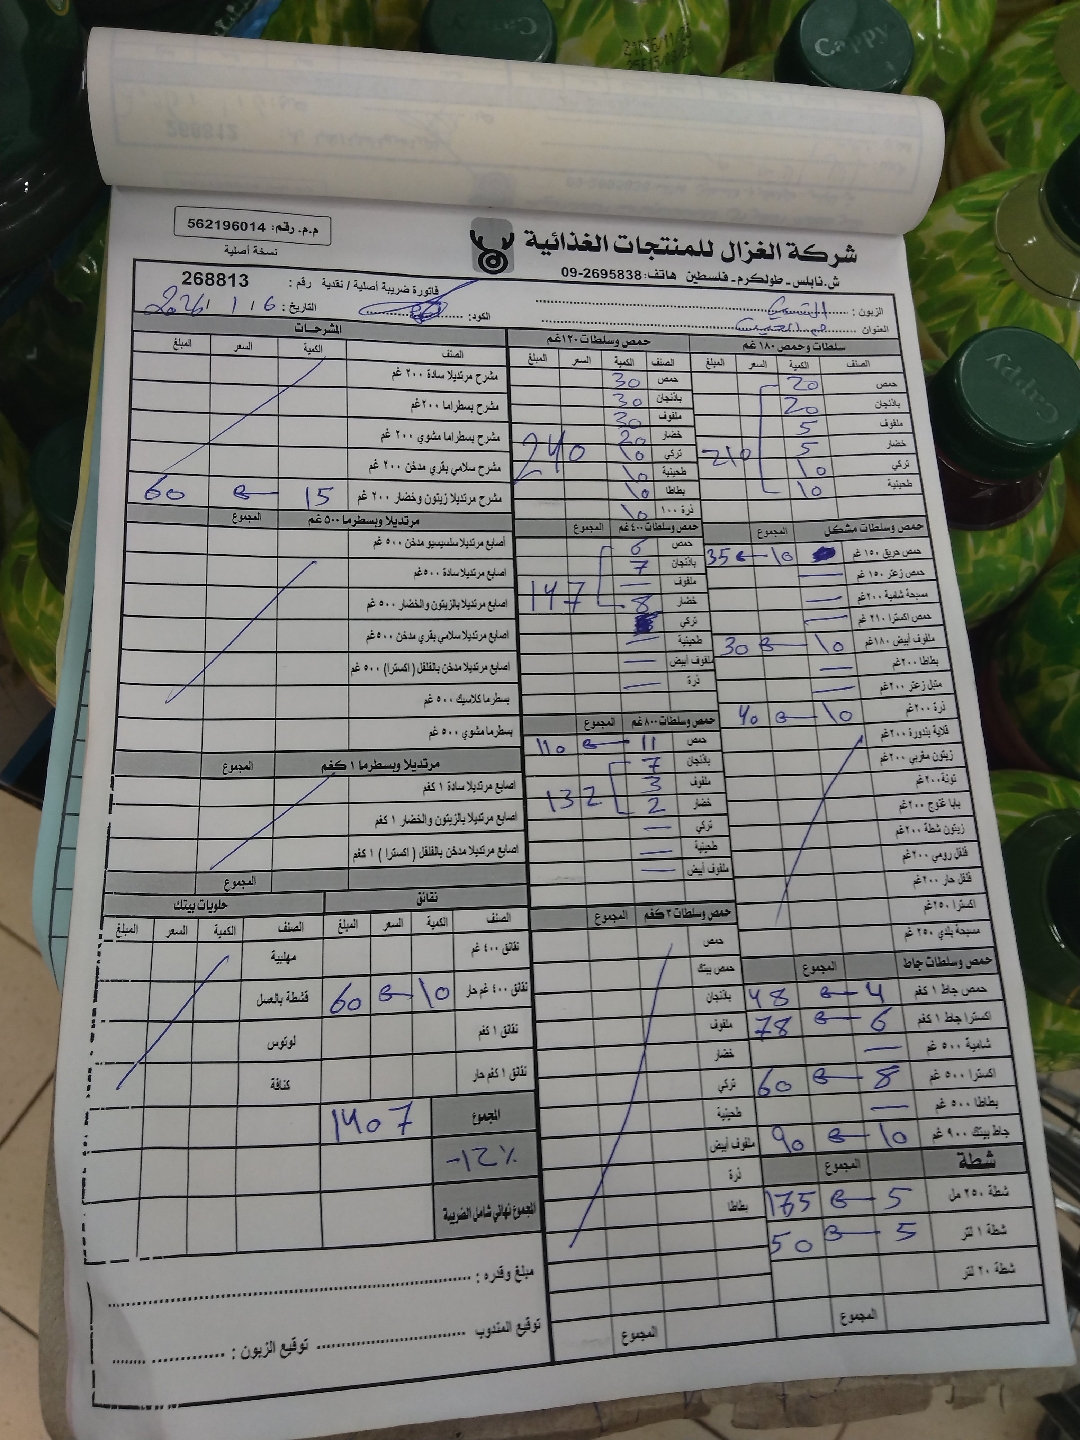 شركة الغزال للمنتجات الغذائية
ش.نابلس - طولكرم - فلسطين هاتف: 2695838-09
م.م. رقم: 562196014
نسخة أصلية
فاتورة ضريبة أصلية / نقدية رقم : 268813
الزبون :
العنوان
الكود:
التاريخ :
سلطات وحمص ١٨٠ غم
الصنف الكمية السعر المبلغ
حمص 20
باذنجان 20
ملفوف 5
خضار 5
تركي 10
طحينية 10
210
حمص وسلطات مشكل المجموع
حمص حريق ١٥٠ غم 10 35
حمص زعتر ١٥٠ غم —
مسبحة شامية ٢٠٠ غم —
حمص اكسترا ٢١٠ غم —
ملفوف أبيض ١٨٠ غم 10 30
بطاطا ٢٠٠ غم —
متبل زعتر ٢٠٠ غم —
ذرة ٢٠٠ غم 10 40
قلاية بندورة ٢٠٠ غم
زيتون مغربي ٢٠٠ غم
تونة ٢٠٠ غم
بابا غنوج ٢٠٠ غم
زيتون شطة ٢٠٠ غم
فلفل رومي ٢٠٠ غم
فلفل حار ٢٠٠ غم
اكسترا ٢٥٠ غم
مسبحة بلدي ٢٥٠ غم
حمص وسلطات جاط المجموع
حمص جاط ١ كغم 4 48
اكسترا جاط ١ كغم 6 78
شامية ٥٠٠ غم —
اكسترا ٥٠٠ غم 8 60
بطاطا ٥٠٠ غم —
جاط بيتك ٩٠٠ غم 10 90
شطة المجموع
شطة ٢٥٠ مل 5
شطة ١ لتر 5 50
شطة ٢٠ لتر
المجموع
حمص وسلطات ١٢٠ غم
الصنف الكمية السعر المبلغ
حمص 30
باذنجان 30
ملفوف 30
خضار 20
تركي 10
طحينية 10
بطاطا 10
ذرة ١٠٠ 10
240
حمص وسلطات ٤٠٠ غم المجموع
حمص 6
باذنجان 7
ملفوف —
خضار 8
تركي
طحينية —
ملفوف أبيض —
ذرة —
147
حمص وسلطات ٨٠٠ غم المجموع
حمص 11 110
باذنجان 7
ملفوف 3
خضار 2
132
تركي —
طحينية —
ملفوف أبيض —
حمص وسلطات ٣ كغم المجموع
حمص
حمص بيتك
باذنجان
ملفوف
خضار
تركي
طحينية
ملفوف أبيض
ذرة
بطاطا
المجموع
المشرحات
الصنف الكمية السعر المبلغ
مشرح مرتديلا سادة ٢٠٠ غم
مشرح بسطراما ٢٠٠ غم
مشرح بسطراما مشوي ٢٠٠ غم
مشرح سلامي بقري مدخن ٢٠٠ غم
مشرح مرتديلا زيتون وخضار ٢٠٠ غم 15 60
مرتديلا وبسطرما ٥٠٠ غم المجموع
اصابع مرتديلا سلسيسيو مدخن ٥٠٠ غم
اصابع مرتديلا سادة ٥٠٠ غم
اصابع مرتديلا بالزيتون والخضار ٥٠٠ غم
اصابع مرتديلا سلامي بقري مدخن ٥٠٠ غم
اصابع مرتديلا مدخن بالفلفل ( اكسترا ) ٥٠٠ غم
بسطرما كلاسيك ٥٠٠ غم
بسطرما مشوي ٥٠٠ غم
مرتديلا وبسطرما ١ كغم المجموع
اصابع مرتديلا سادة ١ كغم
اصابع مرتديلا بالزيتون والخضار ١ كغم
اصابع مرتديلا مدخن بالفلفل ( اكسترا ) ١ كغم
المجموع
نقانق
الصنف الكمية السعر المبلغ
نقانق ٤٠٠ غم
نقانق ٤٠٠ غم حار 10 60
نقانق ١ كغم
نقانق ١ كغم حار
حلويات بيتك
الصنف الكمية السعر المبلغ
مهلبية
قشطة بالعسل
لوتوس
كنافة
المجموع 1407
المجموع نهائي شامل الضريبة
مبلغ وقدره :
توقيع المندوب
توقيع الزبون :
Cappy
Cappy